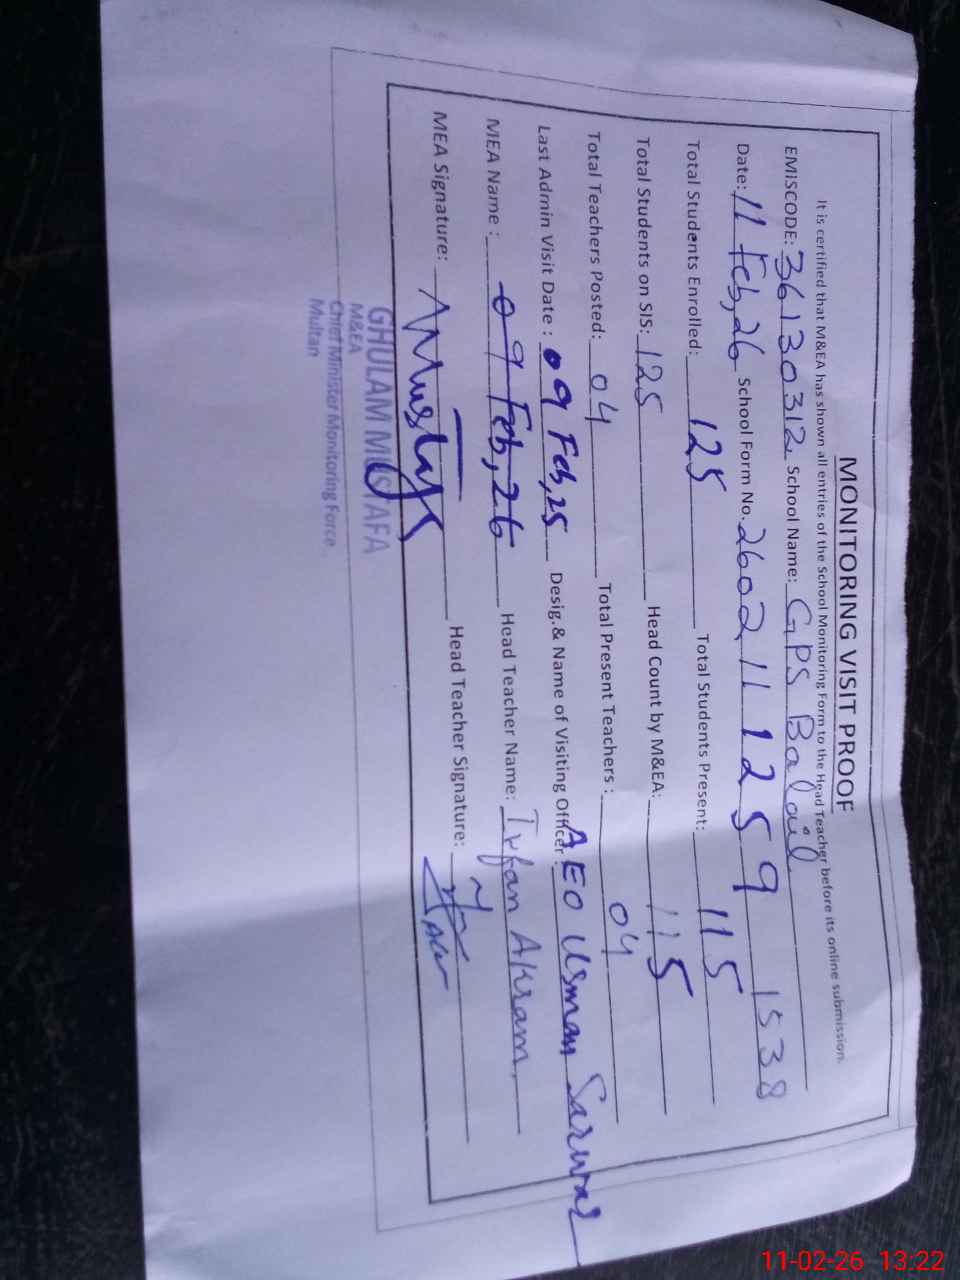 MONITORING VISIT PROOF
It is certified that M&EA has shown all entries of the School Monitoring Form to the Head Teacher before its online submission.
EMISCODE: 36130312 School Name: GPS Balail
Date: 11 Feb, 26 School Form No. 260211 1259 1538
Total Students Enrolled: 125 Total Students Present: 115
Total Students on SIS: 125 Head Count by M&EA: 115
Total Teachers Posted: 04 Total Present Teachers : 04
Last Admin Visit Date : 09 Feb, 25 Desig.& Name of Visiting Officer : AEO Usman Sarwar
MEA Name : 09 Feb, 26 Head Teacher Name: Irfan Akram
MEA Signature: Head Teacher Signature:
GHULAM MUSTAFA
M&EA
Chief Minister Monitoring Force
Multan
11-02-26 13:22